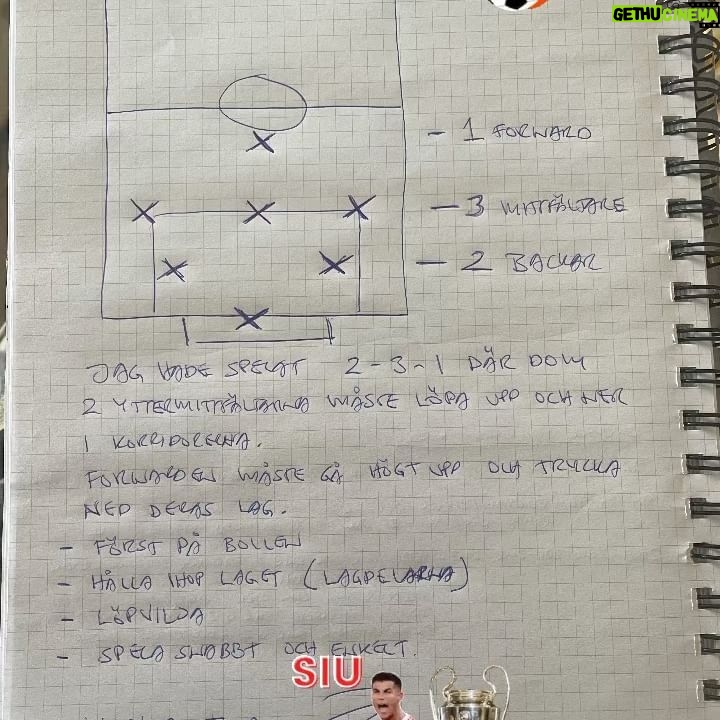 GETHUCINEMA
- 1 FORWARD
- 3 MITTFÄLTARE
- 2 BACKAR
JAG HADE SPELAT 2-3-1 DÄR DOM
2 YTTERMITTFÄLTARNA MÅSTE LÖPA UPP OCH NER
I KORRIDORERNA.
FORWARDEN MÅSTE GÅ HÖGT UPP OCH TRYCKA
NED DERAS LAG.
- FÖRST PÅ BOLLEN
- HÅLLA IHOP LAGET (LAGDELARNA)
- LÖPVILJA
- SPELA SNABBT OCH ENKELT.
SIU